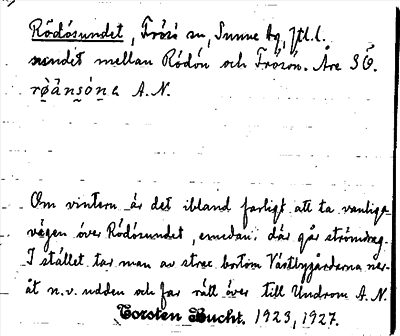 Rödösundet, Frösö sn, Sunne tg, Jtl.l.
sundet mellan Rödön och Frösön. Åre 3 Ö.
A.N.
Om vintern är det ibland farligt att ta vanliga
vägen över Rödösundet, emedan där går strömdrag.
I stället tar man av strax bortom Västbygårdarna ner
åt n.v. udden och far rätt över till Undrom A.N.
Torsten Bucht. 1923, 1927.